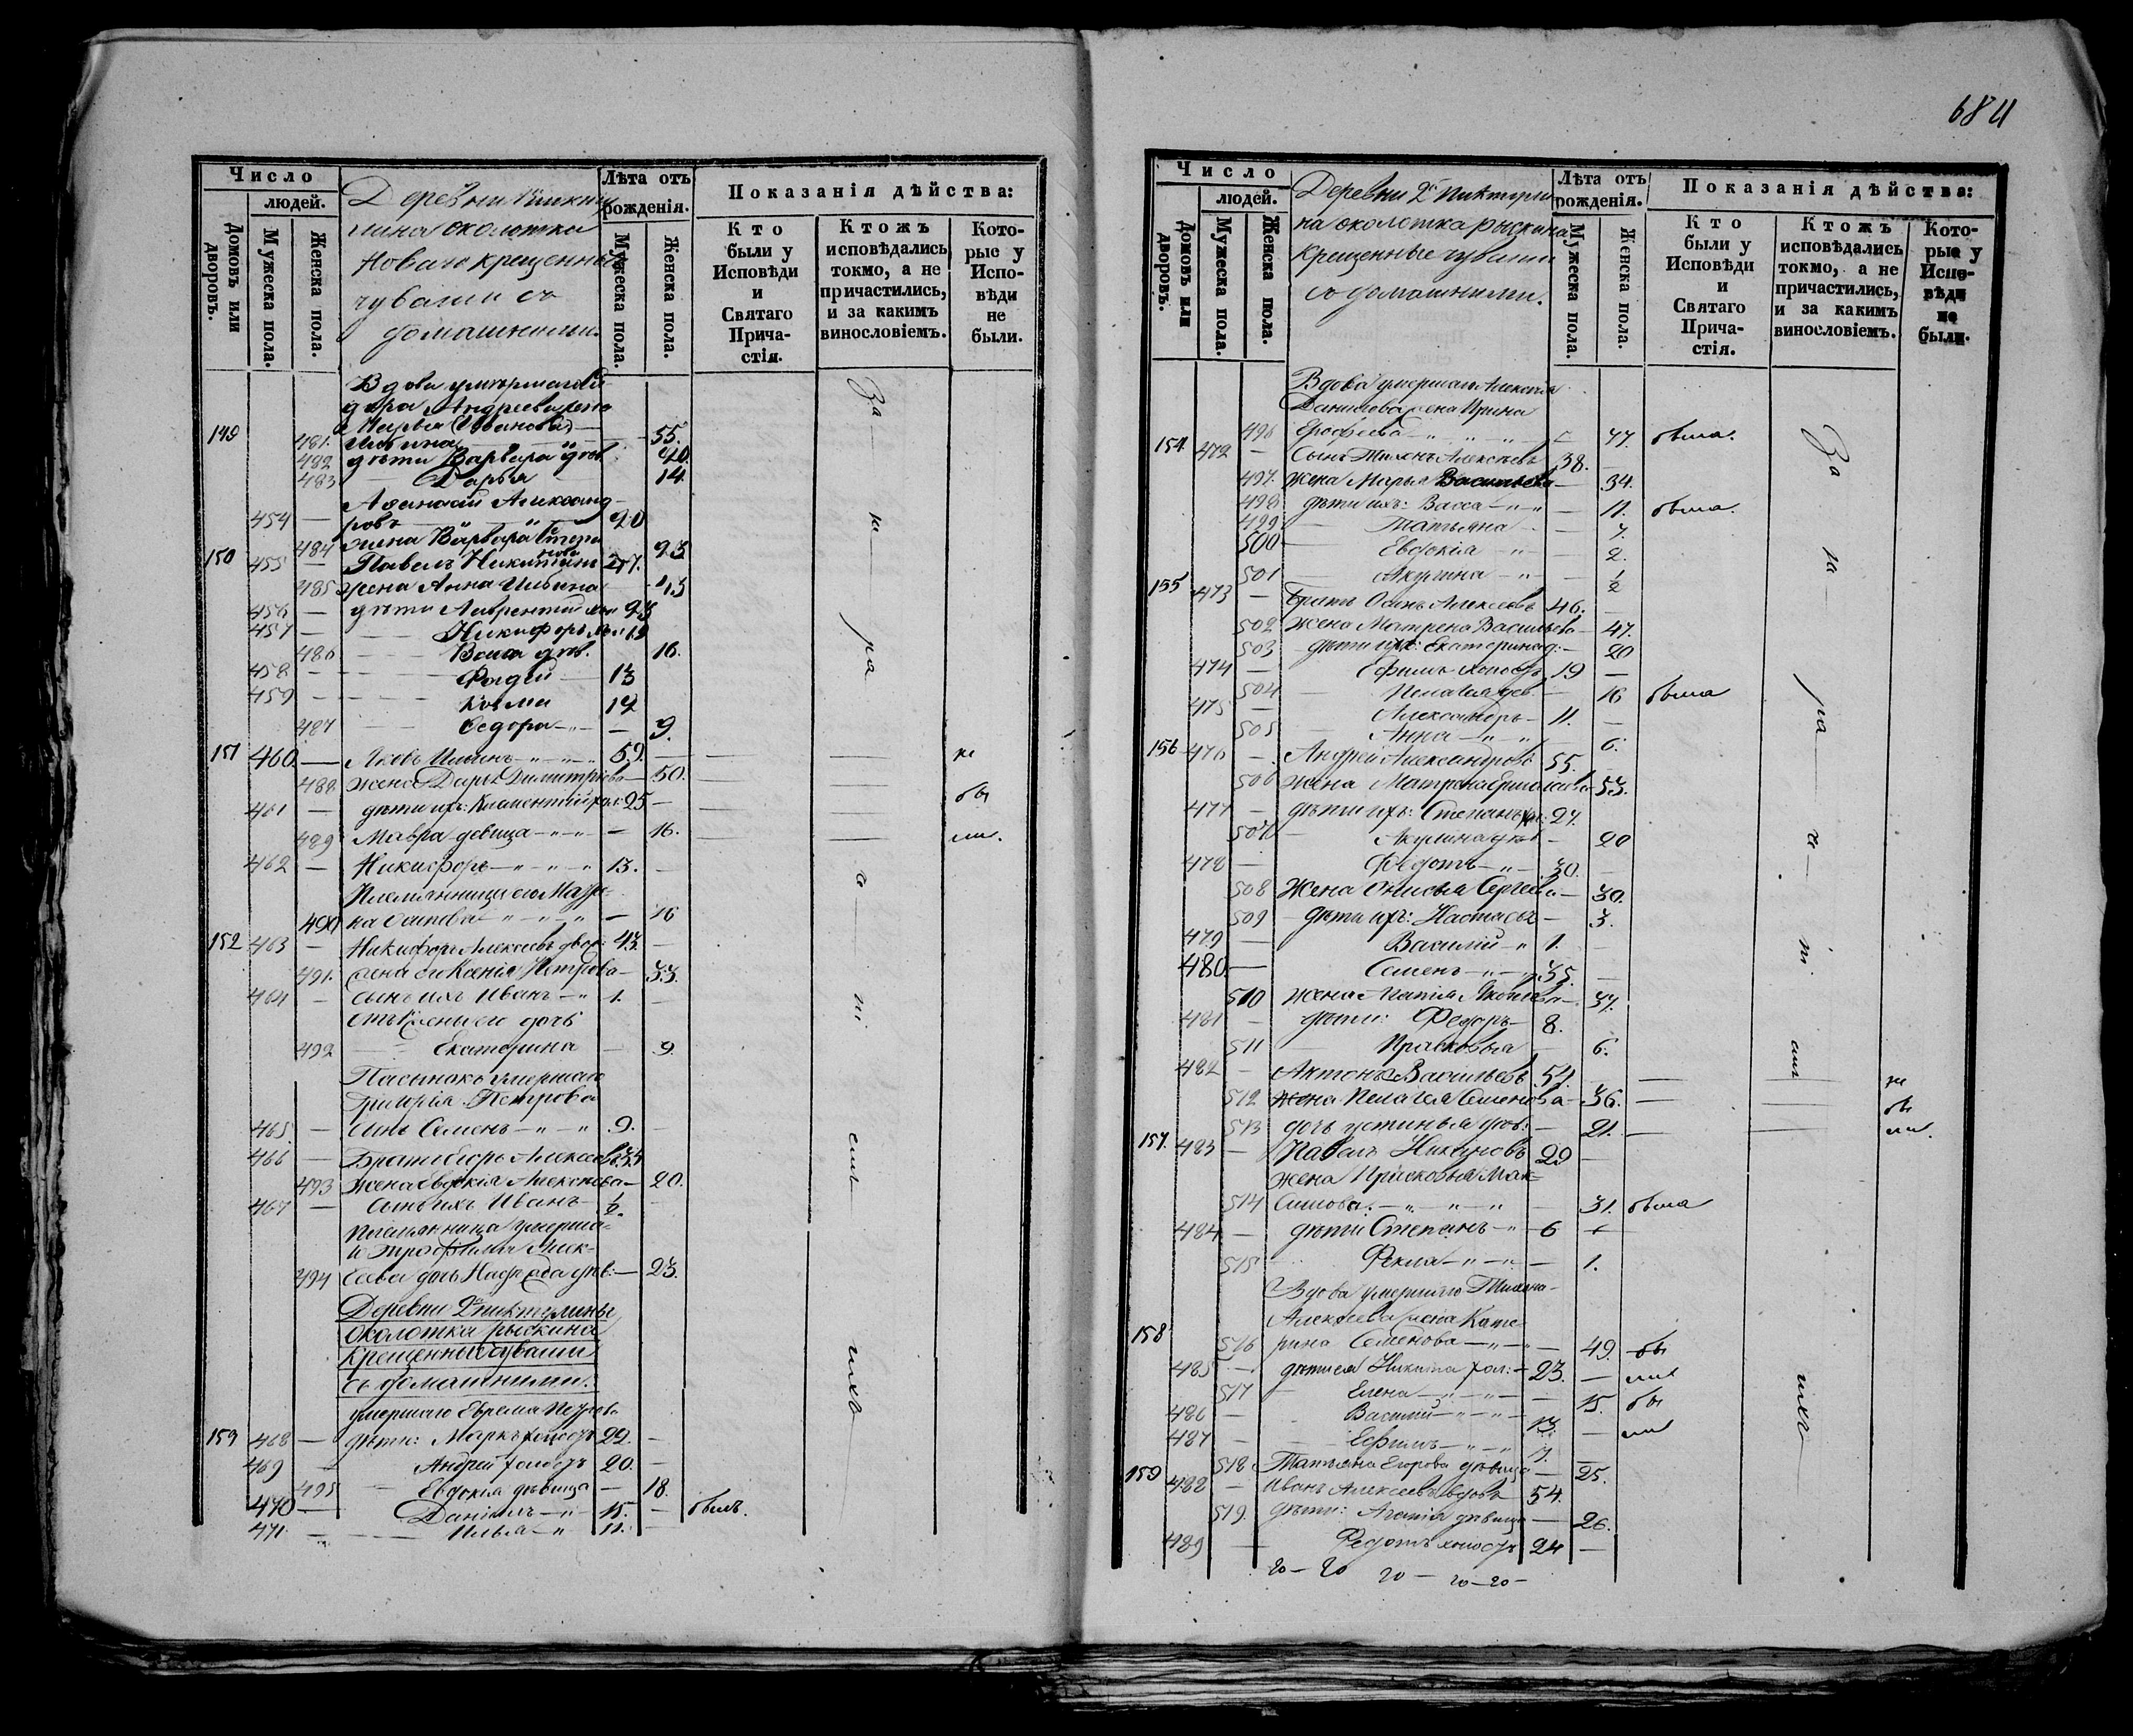 684
Число
людей.
Домовъ или дворовъ.
Мужеска пола.
Женска пола.
Деревни
лина околотка
Новаго крещенные
чуваши съ
домашними.
Лѣта отъ рожденія.
Мужеска пола.
Женска пола.
Показанія дѣйства:
Кто были у Исповѣди и Святаго Причастія.
Ктожъ исповѣдались токмо, а не причастились, и за какимъ винословіемъ.
Которые у Исповѣди не были.
Вдова умершаго
Андреева жена
149 Марья Иванова
481. 55.
482 дѣти Варвара дѣв. 20.
483 Дарья 14.
Афанасій Александ-
454 — ровъ 20
484 жена Варвара 23
150 455 — Павелъ Никитинъ 47.
485 жена Анна 43
456 — дѣти Лаврентій хол 23
457 — Никифоръ 19
486 дѣв. 16.
458 — Фадей 13
459 — Козма 12
487 Федора — 9.
151 460 — Яковъ 59. не
488 жена Дарья Димитріева — 50.
461 — дѣти ихъ: Климентій хол: 25 — бы
489 Мавра девица — 16. ли.
462 — Никифоръ — 13. —
Племянница его Матре-
490 на Осипова — 16
152 463 — Никифоръ Алексѣевъ 43. —
491. жена его Ксенія Петрова — 33.
464 — сынъ ихъ Иванъ — 1. —
дочь
492 Екатерина — 9.
Пасынокъ умершаго
Григорія Петрова
465. — сынъ Семенъ — 9. —
466 — Братъ Егоръ Алексѣевъ 35
493 Жена Евдокія Алексѣева — 20.
467 — Сынъ ихъ Иванъ — ½. —
Племянница умерша-
го Трофима Алек-
494 сѣева дочь дѣв: — 23.
Деревни 2й Пихтулины
околотка рыскина
Крещенные чуваши
съ домашними.
умершаго Ефрема Петрова
153 468 — дѣти: Маркъ холостъ 22. —
469 — Андрей холостъ 20. —
495 Евдокія дѣвица — 18.
470 — Даніилъ — 15. — былъ.
471. — Илья — 11. —
За
не
ра
с
ні
емъ
ихъ
Число
людей.
Домовъ или дворовъ.
Мужеска пола.
Женска пола.
Деревни 2й Пихтули-
на околотка рыскина
крещенные чуваши
со домашними.
Лѣта отъ рожденія.
Мужеска пола.
Женска пола.
Показанія дѣйства:
Кто были у Исповѣди и Святаго Причастія.
Ктожъ исповѣдались токмо, а не причастились, и за какимъ винословіемъ.
Которые у Исповѣди не были.
Вдова умершаго Алексѣя
Данилова жена Ирина
496 Ерофѣева — 77. была.
154 472 — Сынъ Тихонъ Алексѣевъ 38. —
497. жена Марья Васильева — 34.
498 дѣти ихъ: Васса — 11. была.
499 Татьяна — 7.
500 Евдокія — 2.
501 Акулина — ½
155 473 — братъ Осипъ Алексѣевъ 46. —
502 жена Матрена Васильева — 47.
503 дѣти ихъ: Екатерина д: — 20
474 — Ефимъ холостъ 19 —
504 Пелагея дев. — 16 была
475 — Александръ — 11. —
505 Анна — 6.
156 476 — Андрей Александровъ 55. —
506 Жена Матрена Ермолаева — 53.
477 — дѣти ихъ: Степанъ хол: 27.
507 Акулина дѣв — 20
478 — Федотъ — 30. —
508 Жена Онисья Сергеева — 30.
509 дѣти ихъ: Настасья — 3.
479 — Василій — 1. —
480 — Семенъ — 35. —
510 жена Агапія Яковлева — 37.
481 — дѣти: Федоръ — 8.
511 Прасковья — 6.
482 — Антонъ Васильевъ 54. — не
512 жена Пелагея Семенова — 36. — бы
513 дочь Устинья дѣв: — 21. — ли.
157. 483 — Павелъ 29 —
жена Прасковья Мак-
514 симова. — 31. была
484 — дѣти Степанъ — 6 —
515 Фекла — 1.
Вдова умершаго Тихона
Алексѣева жена Кате-
158 516 рина Семенова — 49. — бы
485 — дѣти ея Никита хол: — 23. — ли
517 Елена — 15. бы
486 — Василій — 13. — ли
487 — Ефимъ — 7.
518 Татьяна Егорова дѣвица — 25.
159 488 — Иванъ Алексѣевъ вдовъ 54. —
519. дѣти: Агапія дѣвица — 26.
489 — Федотъ холостъ 24 —
20 — 20 20 — 20 — 20 —
За
не
ра
с
ні
емъ
ихъ